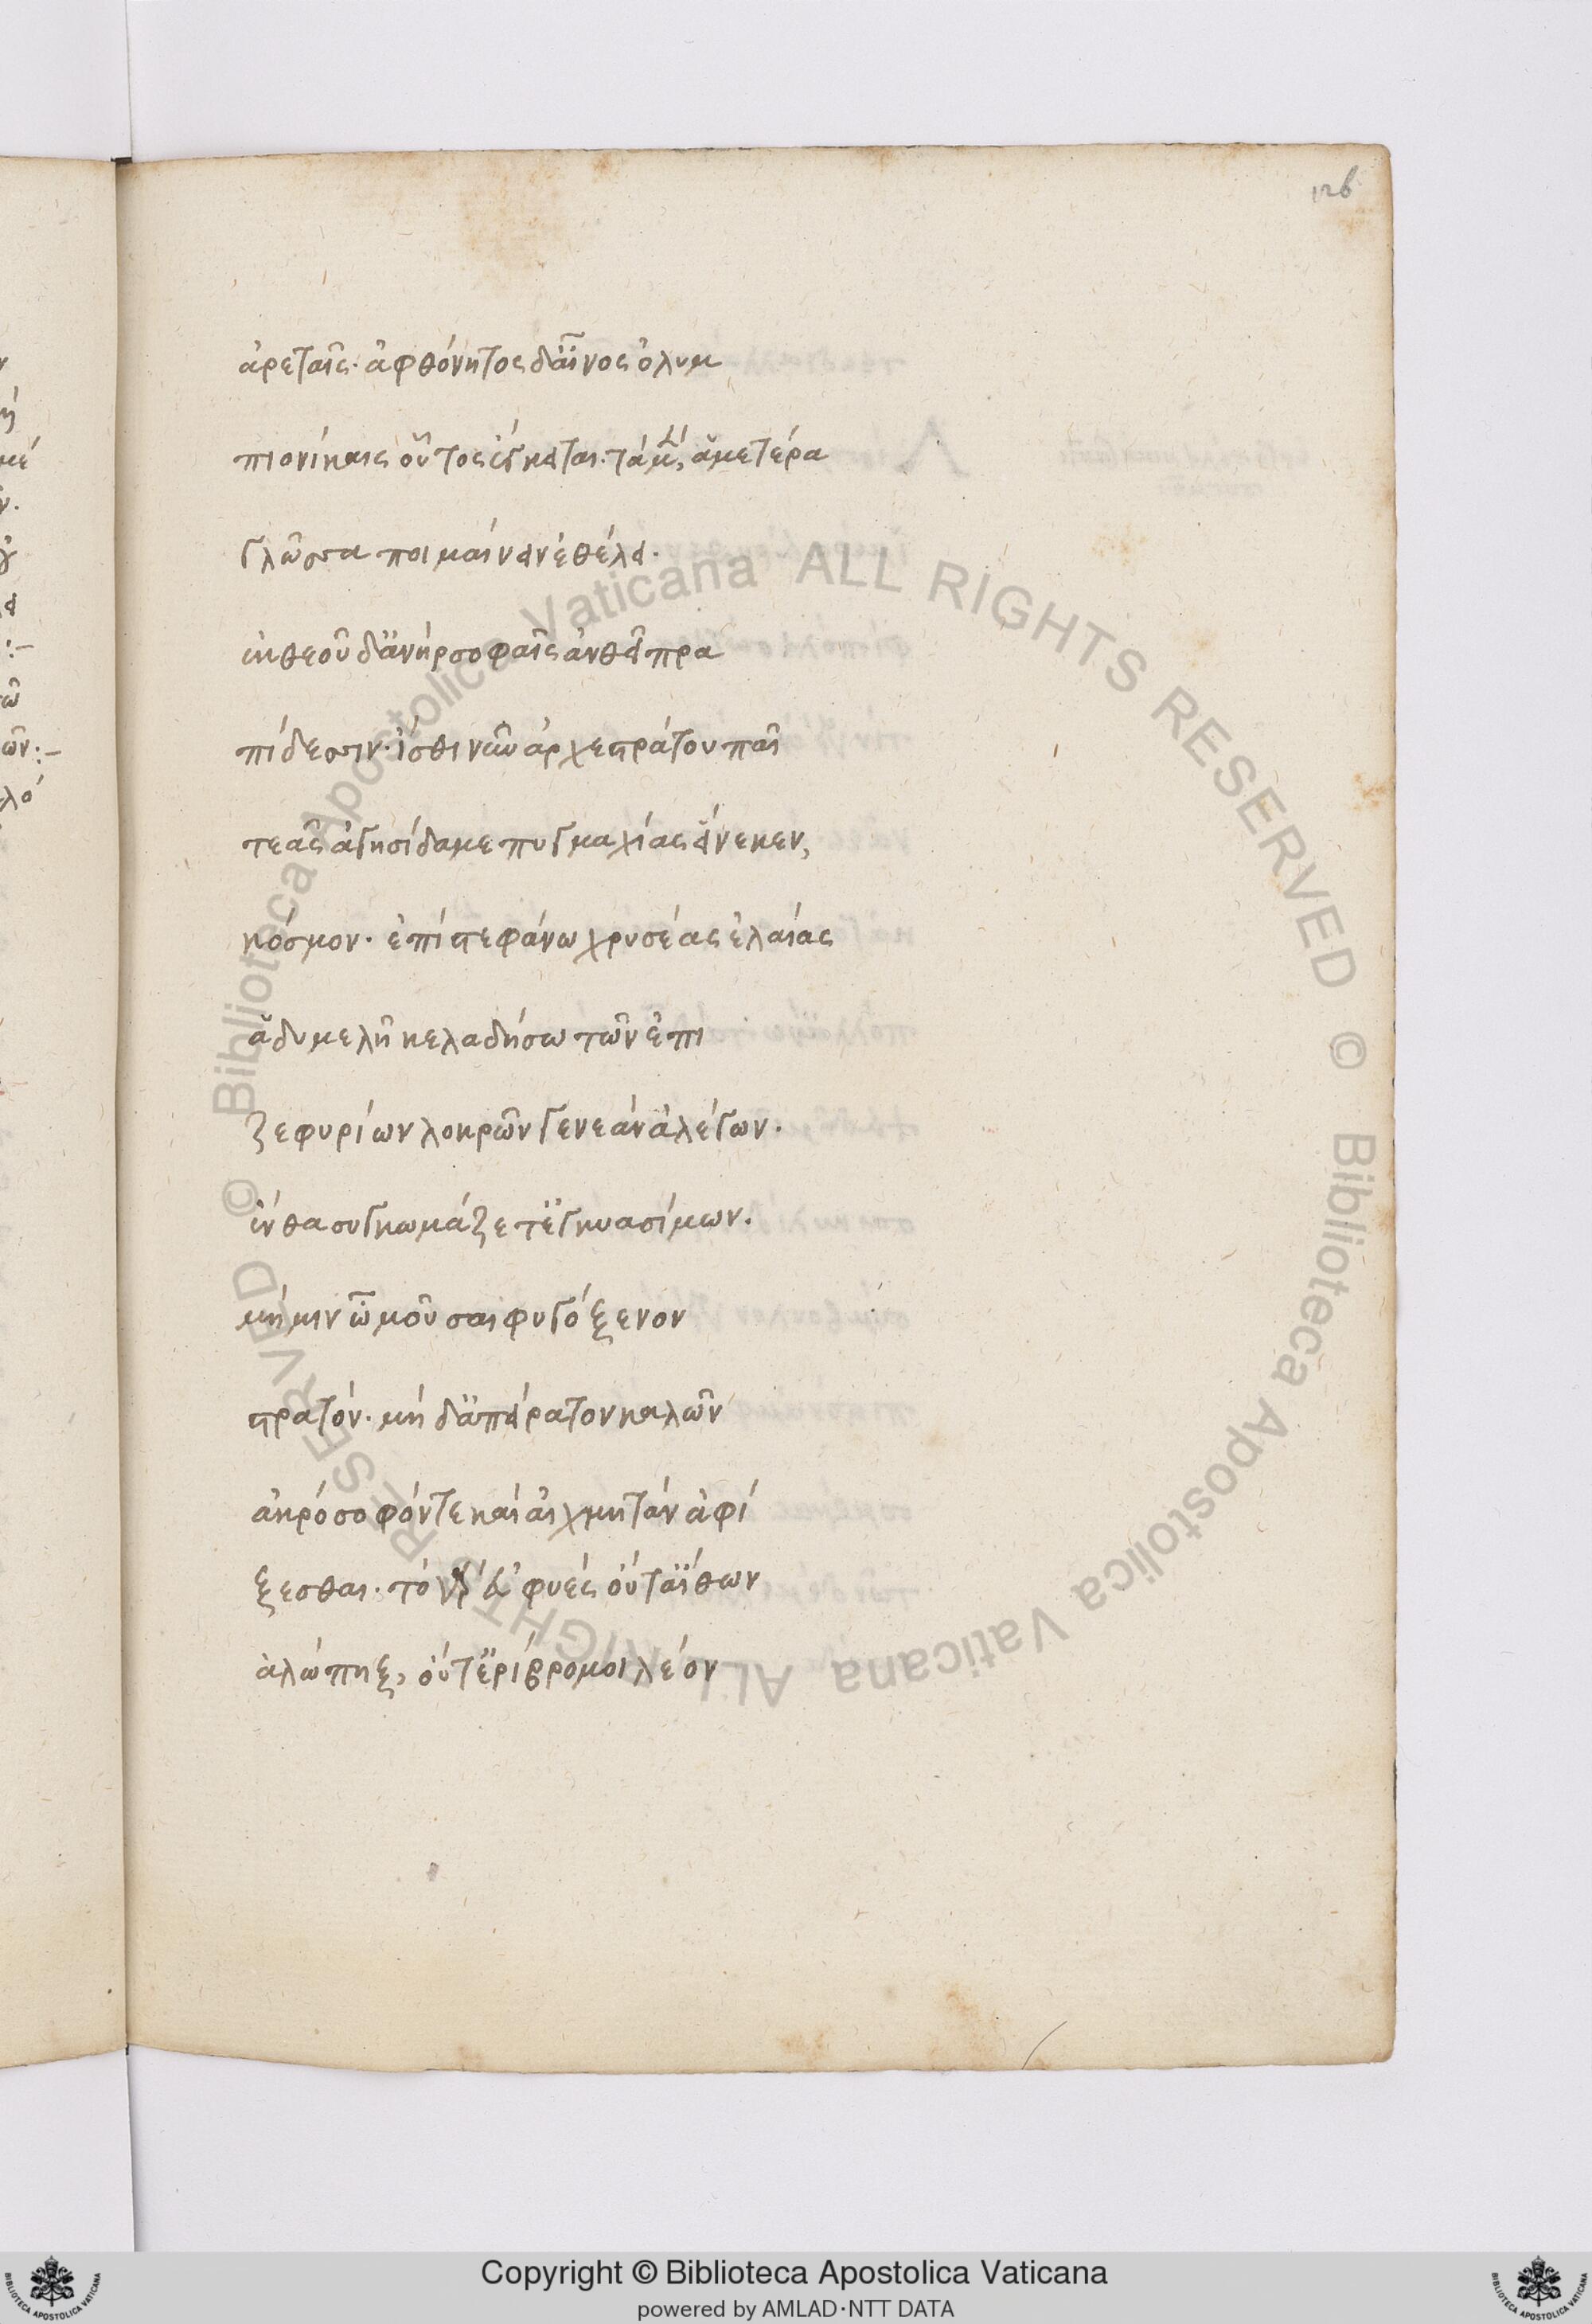 126
ἀρεταῖς· ἀφθόνητος δ' αἶνος ὀλυμ
πιονίκαις οὗτος ἔγκειται· τὰ μὲν, ἁμετέρα
γλῶσσα ποιμαίνειν ἐθέλει·
ἐκ θεοῦ δ' ἀνὴρ σοφαῖς ἀνθεῖ πρα
πίδεσσιν· ἴσθι νῦν ἀρχεστράτου παῖ
τεᾶς ἁγησίδαμε πυγμαχίας εἵνεκεν,
κόσμον· ἐπὶ στεφάνω χρυσέας ἐλαίας
ἁδυμελῆ κελαδήσω τῶν ἐπι
ζεφυρίων λοκρῶν γενεὰν ἀλέγων·
ἔνθα συγκωμάξετ' ἐγγυάσομαι·
μή μιν ὦ μοῦσαι φυγόξενον
στρατόν· μὴ δ' ἀπείρατον καλῶν
ἀκρόσοφόν τε καὶ αἰχμητὰν ἀφί
ξεσθαι· τὸ γὰρ ἐμφυὲς οὔτ' αἴθων
ἀλώπηξ, οὔτ' ἐρίβρομοι λέον
© Biblioteca Apostolica Vaticana ALL RIGHTS RESERVED © Biblioteca Apostolica Vaticana ALL RIGHTS RESERVED
Copyright © Biblioteca Apostolica Vaticana
powered by AMLAD·NTT DATA
BIBLIOTECA APOSTOLICA VATICANA
BIBLIOTECA APOSTOLICA VATICANA